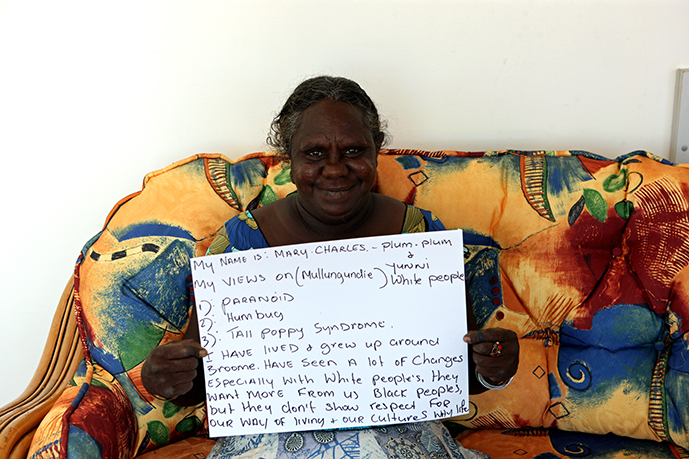 My Name is: MARY. CHARLES. - plum. plum
& YUNNI
My VIEWS on (Mullungundie) White people
1). PARANOID
2). Humbug
3). Tall Poppy Syndrome.
I HAVE LIVED & grew up around
Broome. HAVE SEEN A LOT of Changes
Especially With White people's, they
WANT MORE FROM us BLACK peoples,
but they don't show respect FOR
OUR WAY OF living + OUR CULTURES Why life